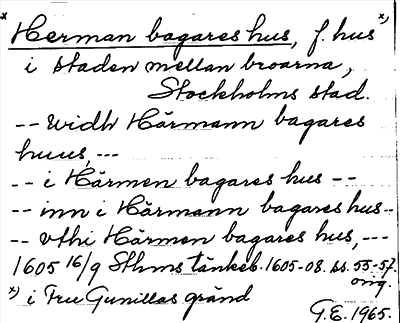 x Herman bagares hus, f. hus x)
i staden mellan broarna,
Stockholms stad.
-- widh Härmann bagares
huus, ---
-- i Härmen bagares hus --
-- inn i Härmann bagares hus --
-- vthi Härmen bagares hus, ---
1605 16/9 Sthms tänkeb. 1605-08. ss. 55-57.
orig.
x) i Fru Gunillas gränd
G.E. 1965.